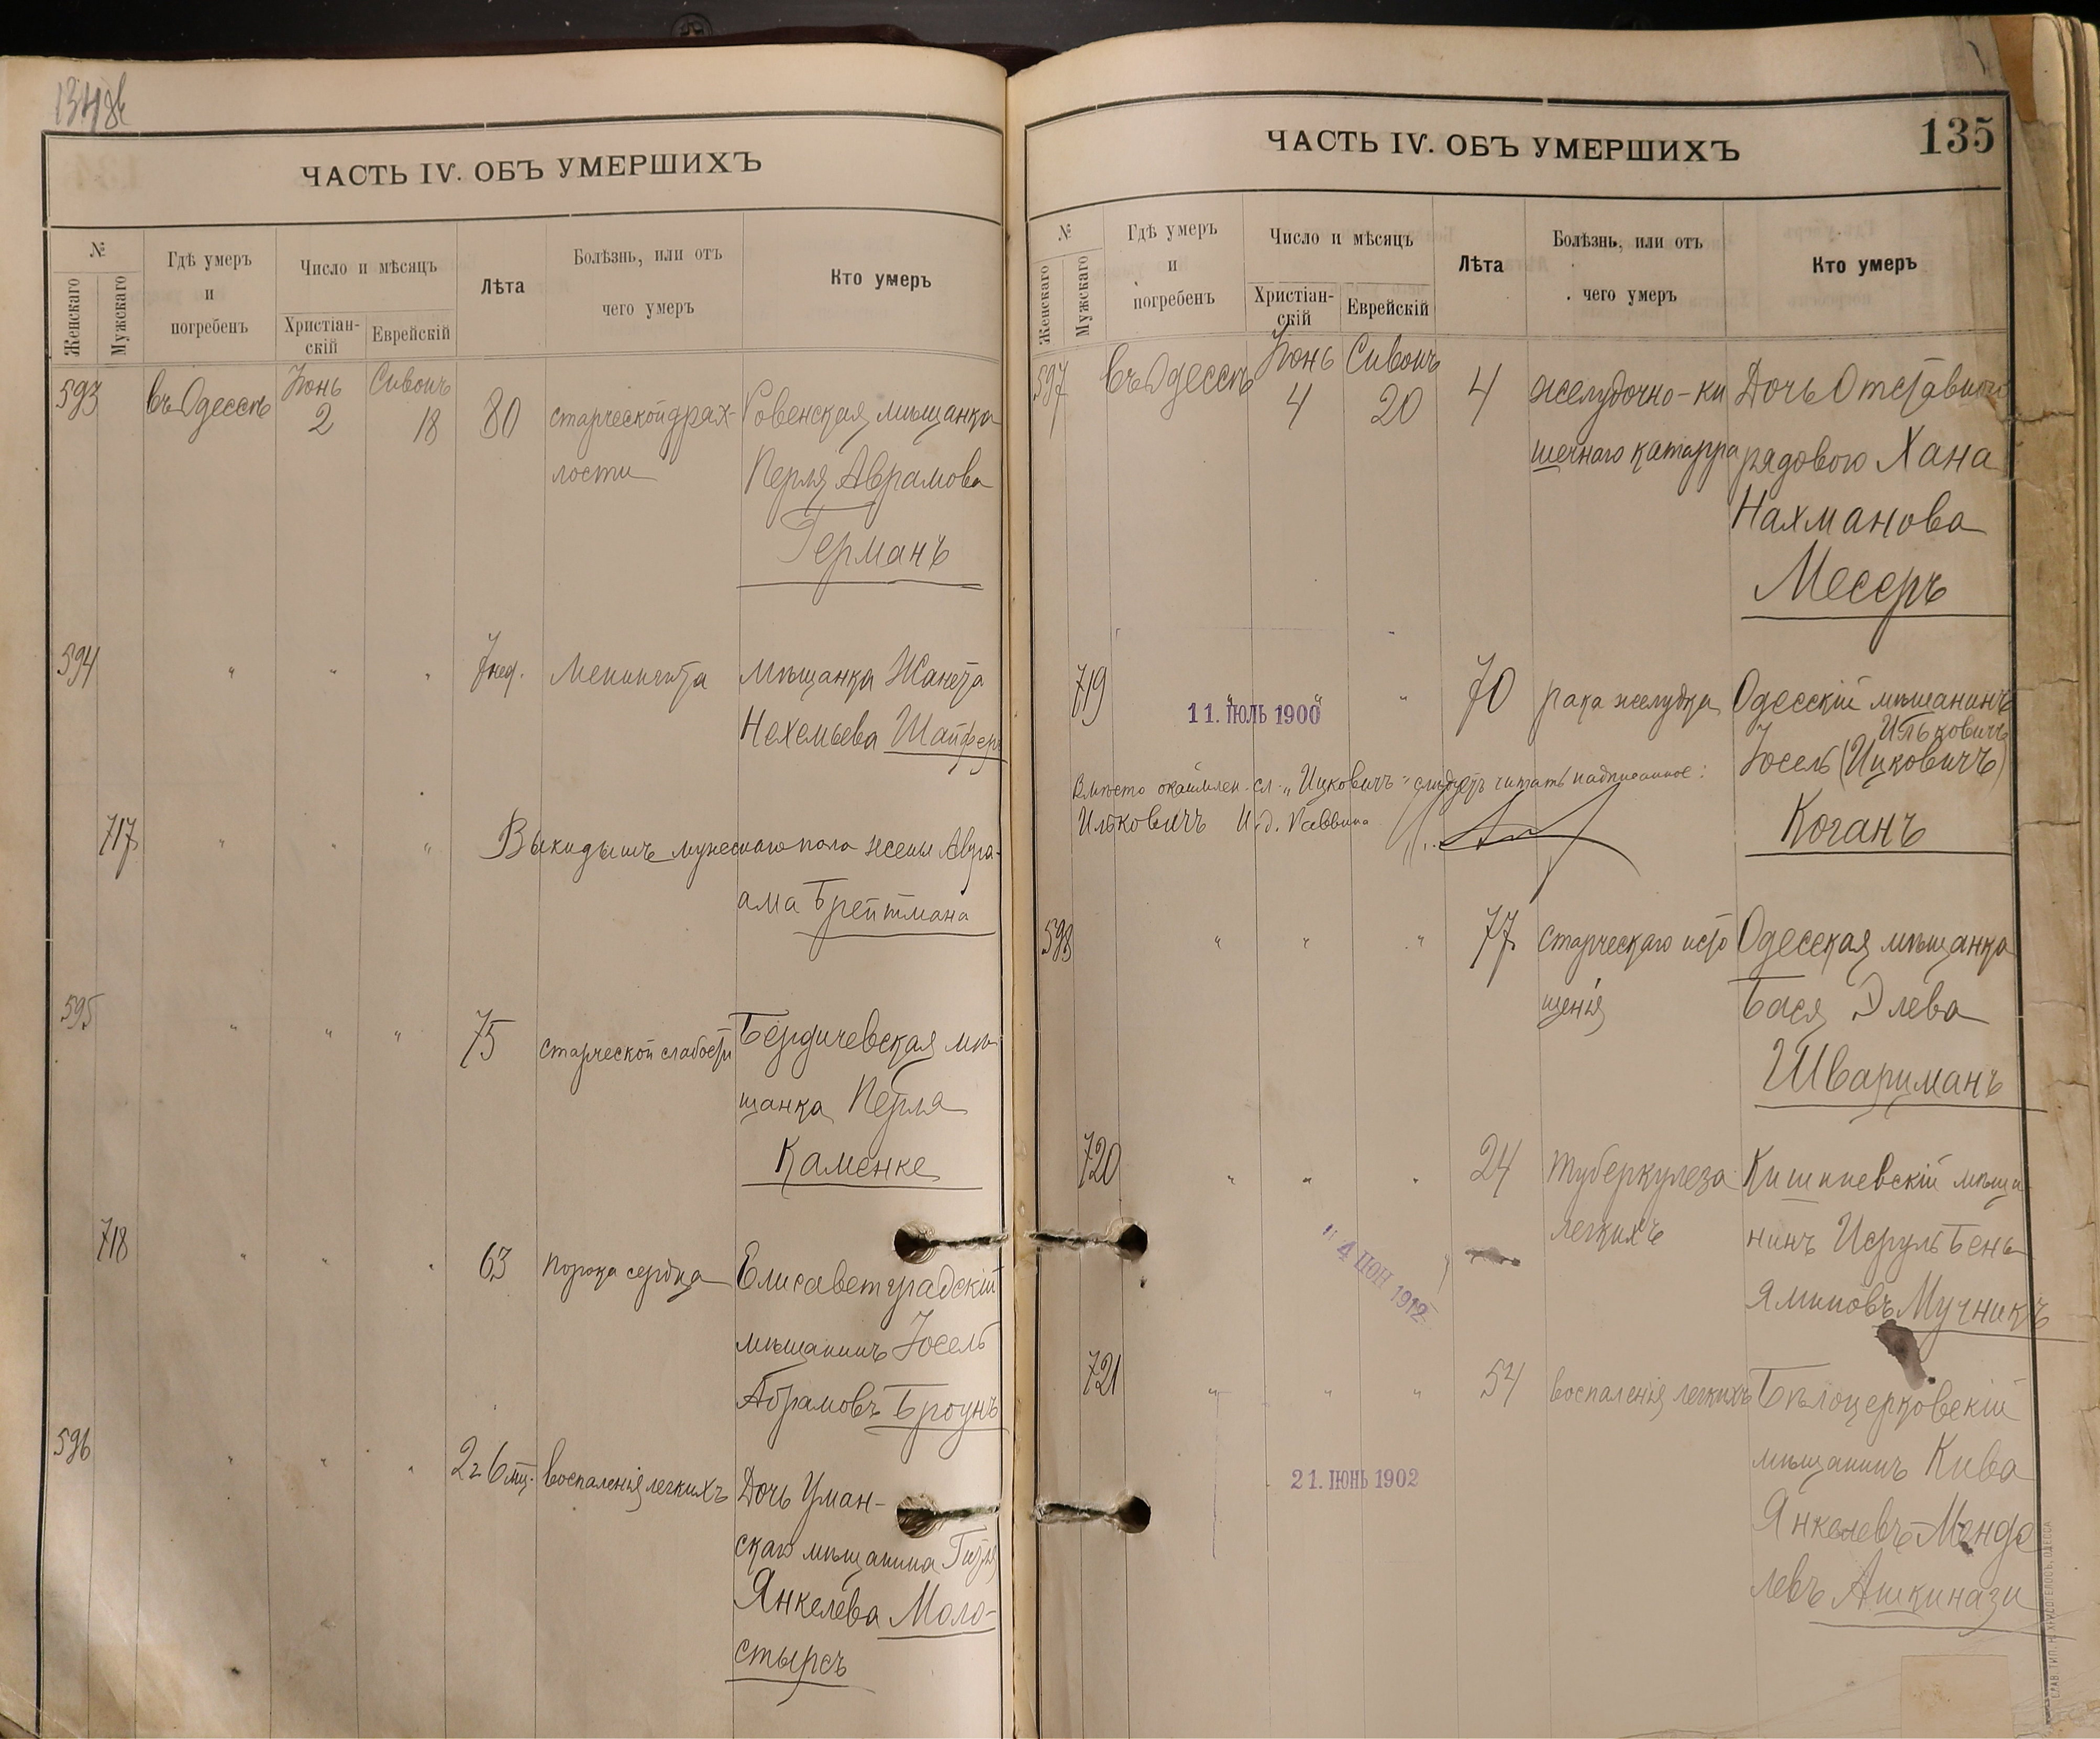 134 об
ЧАСТЬ IV. ОБЪ УМЕРШИХЪ
№
Женскаго
Мужскаго
Гдѣ умеръ
и
погребенъ
Число и мѣсяцъ
Христіан-
скій
Еврейскій
Лѣта
Болѣзнь, или отъ
чего умеръ
Кто умеръ
593 въ Одессѣ Іюнь 2 Сивонъ 18 80 старческой дрях- Ровенская мѣщанка
лости Перля Аврамова
Германъ
594 " " " 7 нед. Менингита мѣщанка Жанета
Нехемьева Шайферъ
717 " " " Выкидышъ мужескаго пола жены Авра-
ама Брейтмана
595 " " " 75 старческой слабости Бердичевская мѣ-
щанка Перля
Каменке
718 " " " 63 порока сердца Елисаветградскій
мѣщанинъ Іосель
Абрамовъ Броунъ
596 " " " 2 г 6 мц. воспаленія легкихъ Дочь Уман-
скаго мѣщанина
Янкелева Моло-
стырсъ
ЧАСТЬ IV. ОБЪ УМЕРШИХЪ
135
№
Женскаго
Мужскаго
Гдѣ умеръ
и
погребенъ
Число и мѣсяцъ
Христіан-
скій
Еврейскій
Лѣта
Болѣзнь, или отъ
чего умеръ
Кто умеръ
597 въ Одессѣ Іюнь 4 Сивонъ 20 4 желудочно-ки Дочь Отставного
шечнаго катарра рядового Хана
Нахманова
Месеръ
719 " " " 70 рака желудка Одесскій мѣщанинъ
11. ІЮЛЬ 1900
Ильковичъ
Іосель (Ицковичъ)
Вмѣсто окаймлен. сл. „Ицковичъ" слѣдуетъ читать надписанное:
Ильковичъ И. д. Раввина
Коганъ
598 " " " 77 старческаго исто Одесская мѣщанка
щенія Бася Элева
Шварцманъ
720 " " " 24 туберкулеза Кишиневскій мѣща-
легкихъ нинъ Исруль Бень-
яминовъ Мучникъ
4 ІЮН 1912
721 " " " 54 воспаленія легкихъ Бѣлоцерковскій
мѣщанинъ Кива
21. ІЮНЬ 1902
Янкелевъ-Менде
левъ Ашкинази